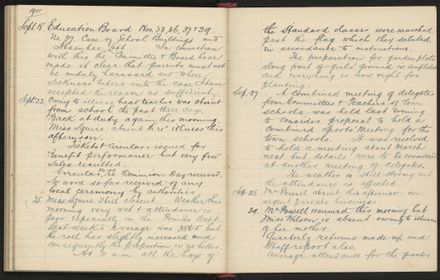 1911
Sept 18 Education Board Nos 33, 36, 37 & 39
re Care of School Buildings and
Absentee List In churation
with this the Committee & Board have
made it clear that parents must not
be unduly harassed and where
sickness enters into the case I have
accepted the excuse as sufficient.
Sept 22 Owing to illness head teacher was absent
from school the last three days.
Back at duty again this morning.
Miss Squire absent thro' illness this
afternoon.
Tickets & Circulars issued for
Benefit performance but very few
sales resulted.
Circular re Dominion Day received.
No word so far received of any
local ceremony by authorities
25 Miss Squire still absent. Weather this
morning very wet & attendance is
poor especially in the Infant Dept.
Last week's average was 356.5 but
the roll has slightly increased and
consequently the proportion is no better.
At 11 am all the boys of
the Standard classes were marched
past the flag which they saluted
in accordance to instructions.
The preparation for garden plots
along front of girls' grounds is completed
and everything is now right for
planting.
Sep. 27 A combined meeting of delegates
from Committees & Teachers of Town
schools was held last evening
to consider proposal to hold a
Combined Sports' Meeting for the
town schools. It was resolved
to hold a meeting about March
next but details were to be considered
at another meeting of delegates.
The weather is still stormy and
the attendance is affected.
Sep. 28 Mr Powell absent this afternoon on
urgent private business.
29 Mr Powell returned this morning but
Miss Wilson is absent owing to illness
of her mother.
Quarterly returns made up and
Staff report also.
Average attendance for the quarter